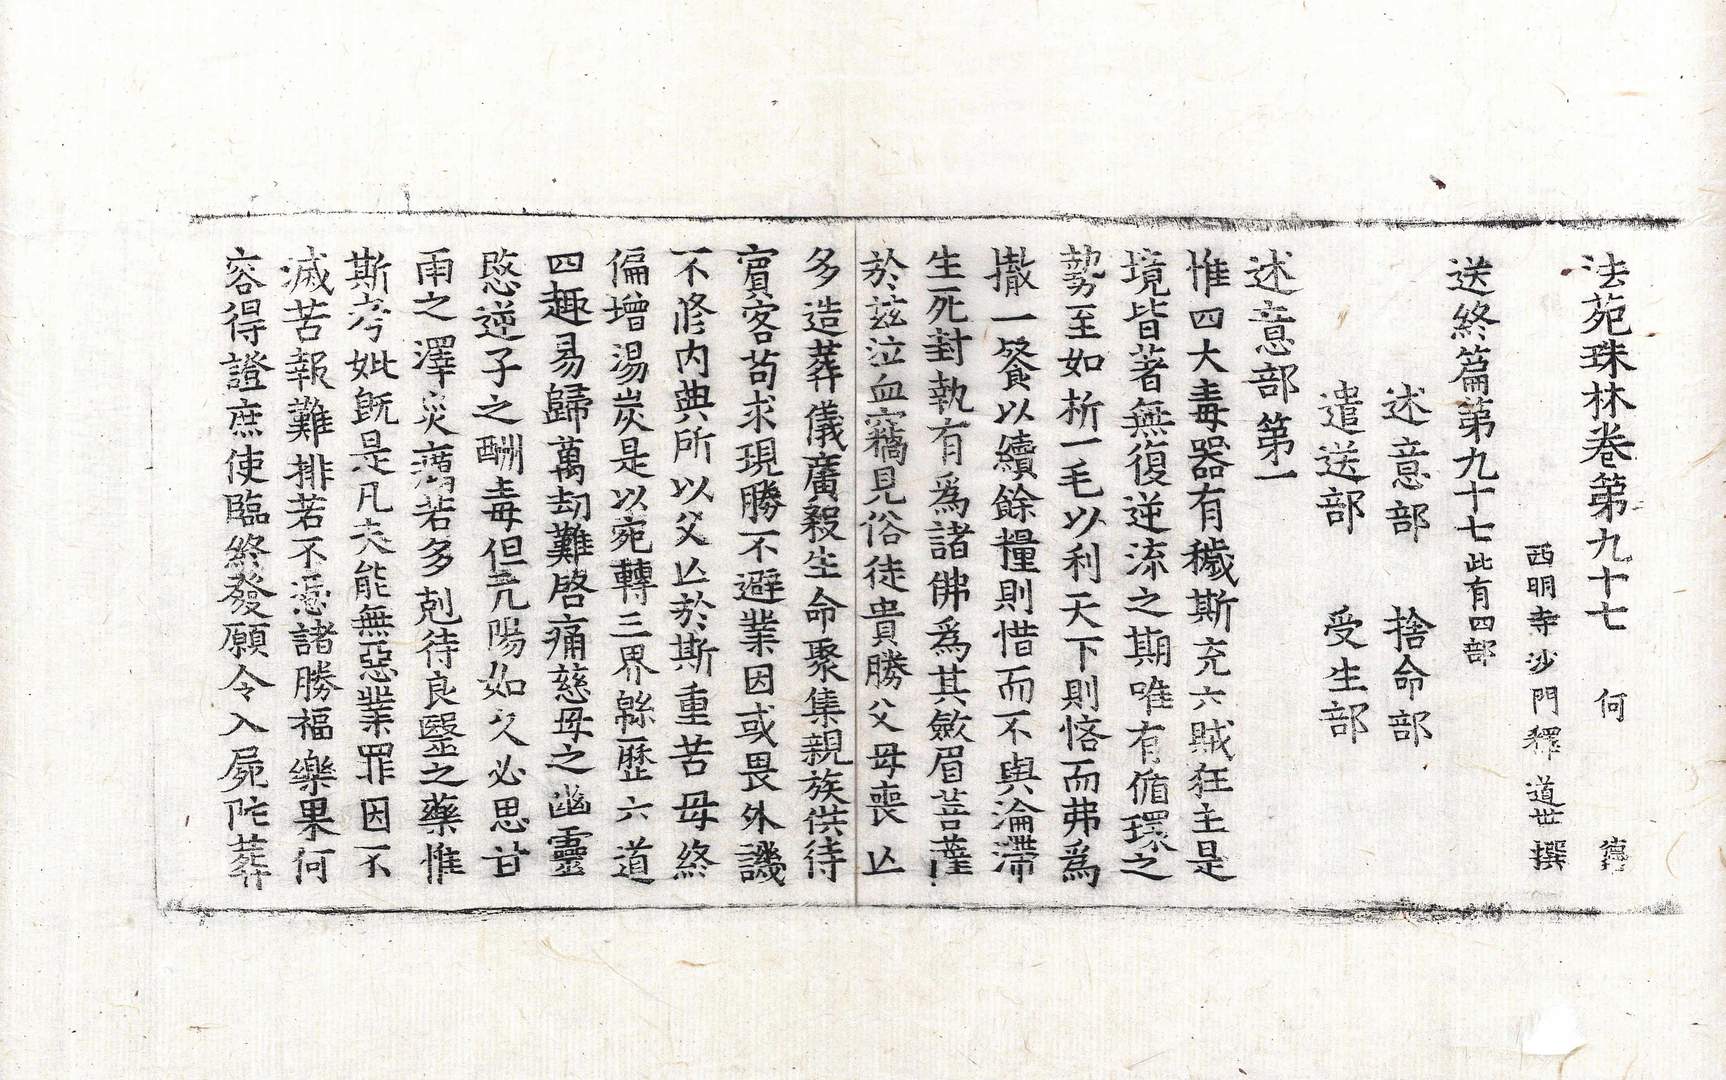 法苑珠林卷第九十七　何　德
西明寺沙門釋　道世　撰
送終篇第九十七此有四部
述意部　捨命部
遣送部　受生部
述意部第一
惟四大毒器有穢斯充六賊狂主是
境皆著無復逆流之期唯有循環之
勢至如析一毛以利天下則悋而弗爲
撤一餐以續餘糧則惜而不與淪滯
生死封執有爲諸佛爲其斂眉菩薩
於茲泣血竊見俗徒貴勝父母喪亡
多造葬儀廣殺生命聚集親族供待
賓客苟求現勝不避業因或畏外譏
不修内典所以父亡於斯重苦母終
偏增湯炭是以宛轉三界緜歷六道
四趣易歸萬劫難啓痛慈母之幽靈
愍逆子之酬毒但亢陽如久必思甘
雨之澤災癘若多剋待良醫之藥惟
斯考妣旣是凡夫能無惡業罪因不
滅苦報難排若不憑諸勝福樂果何
容得證庶使臨終發願令入屍陀葬